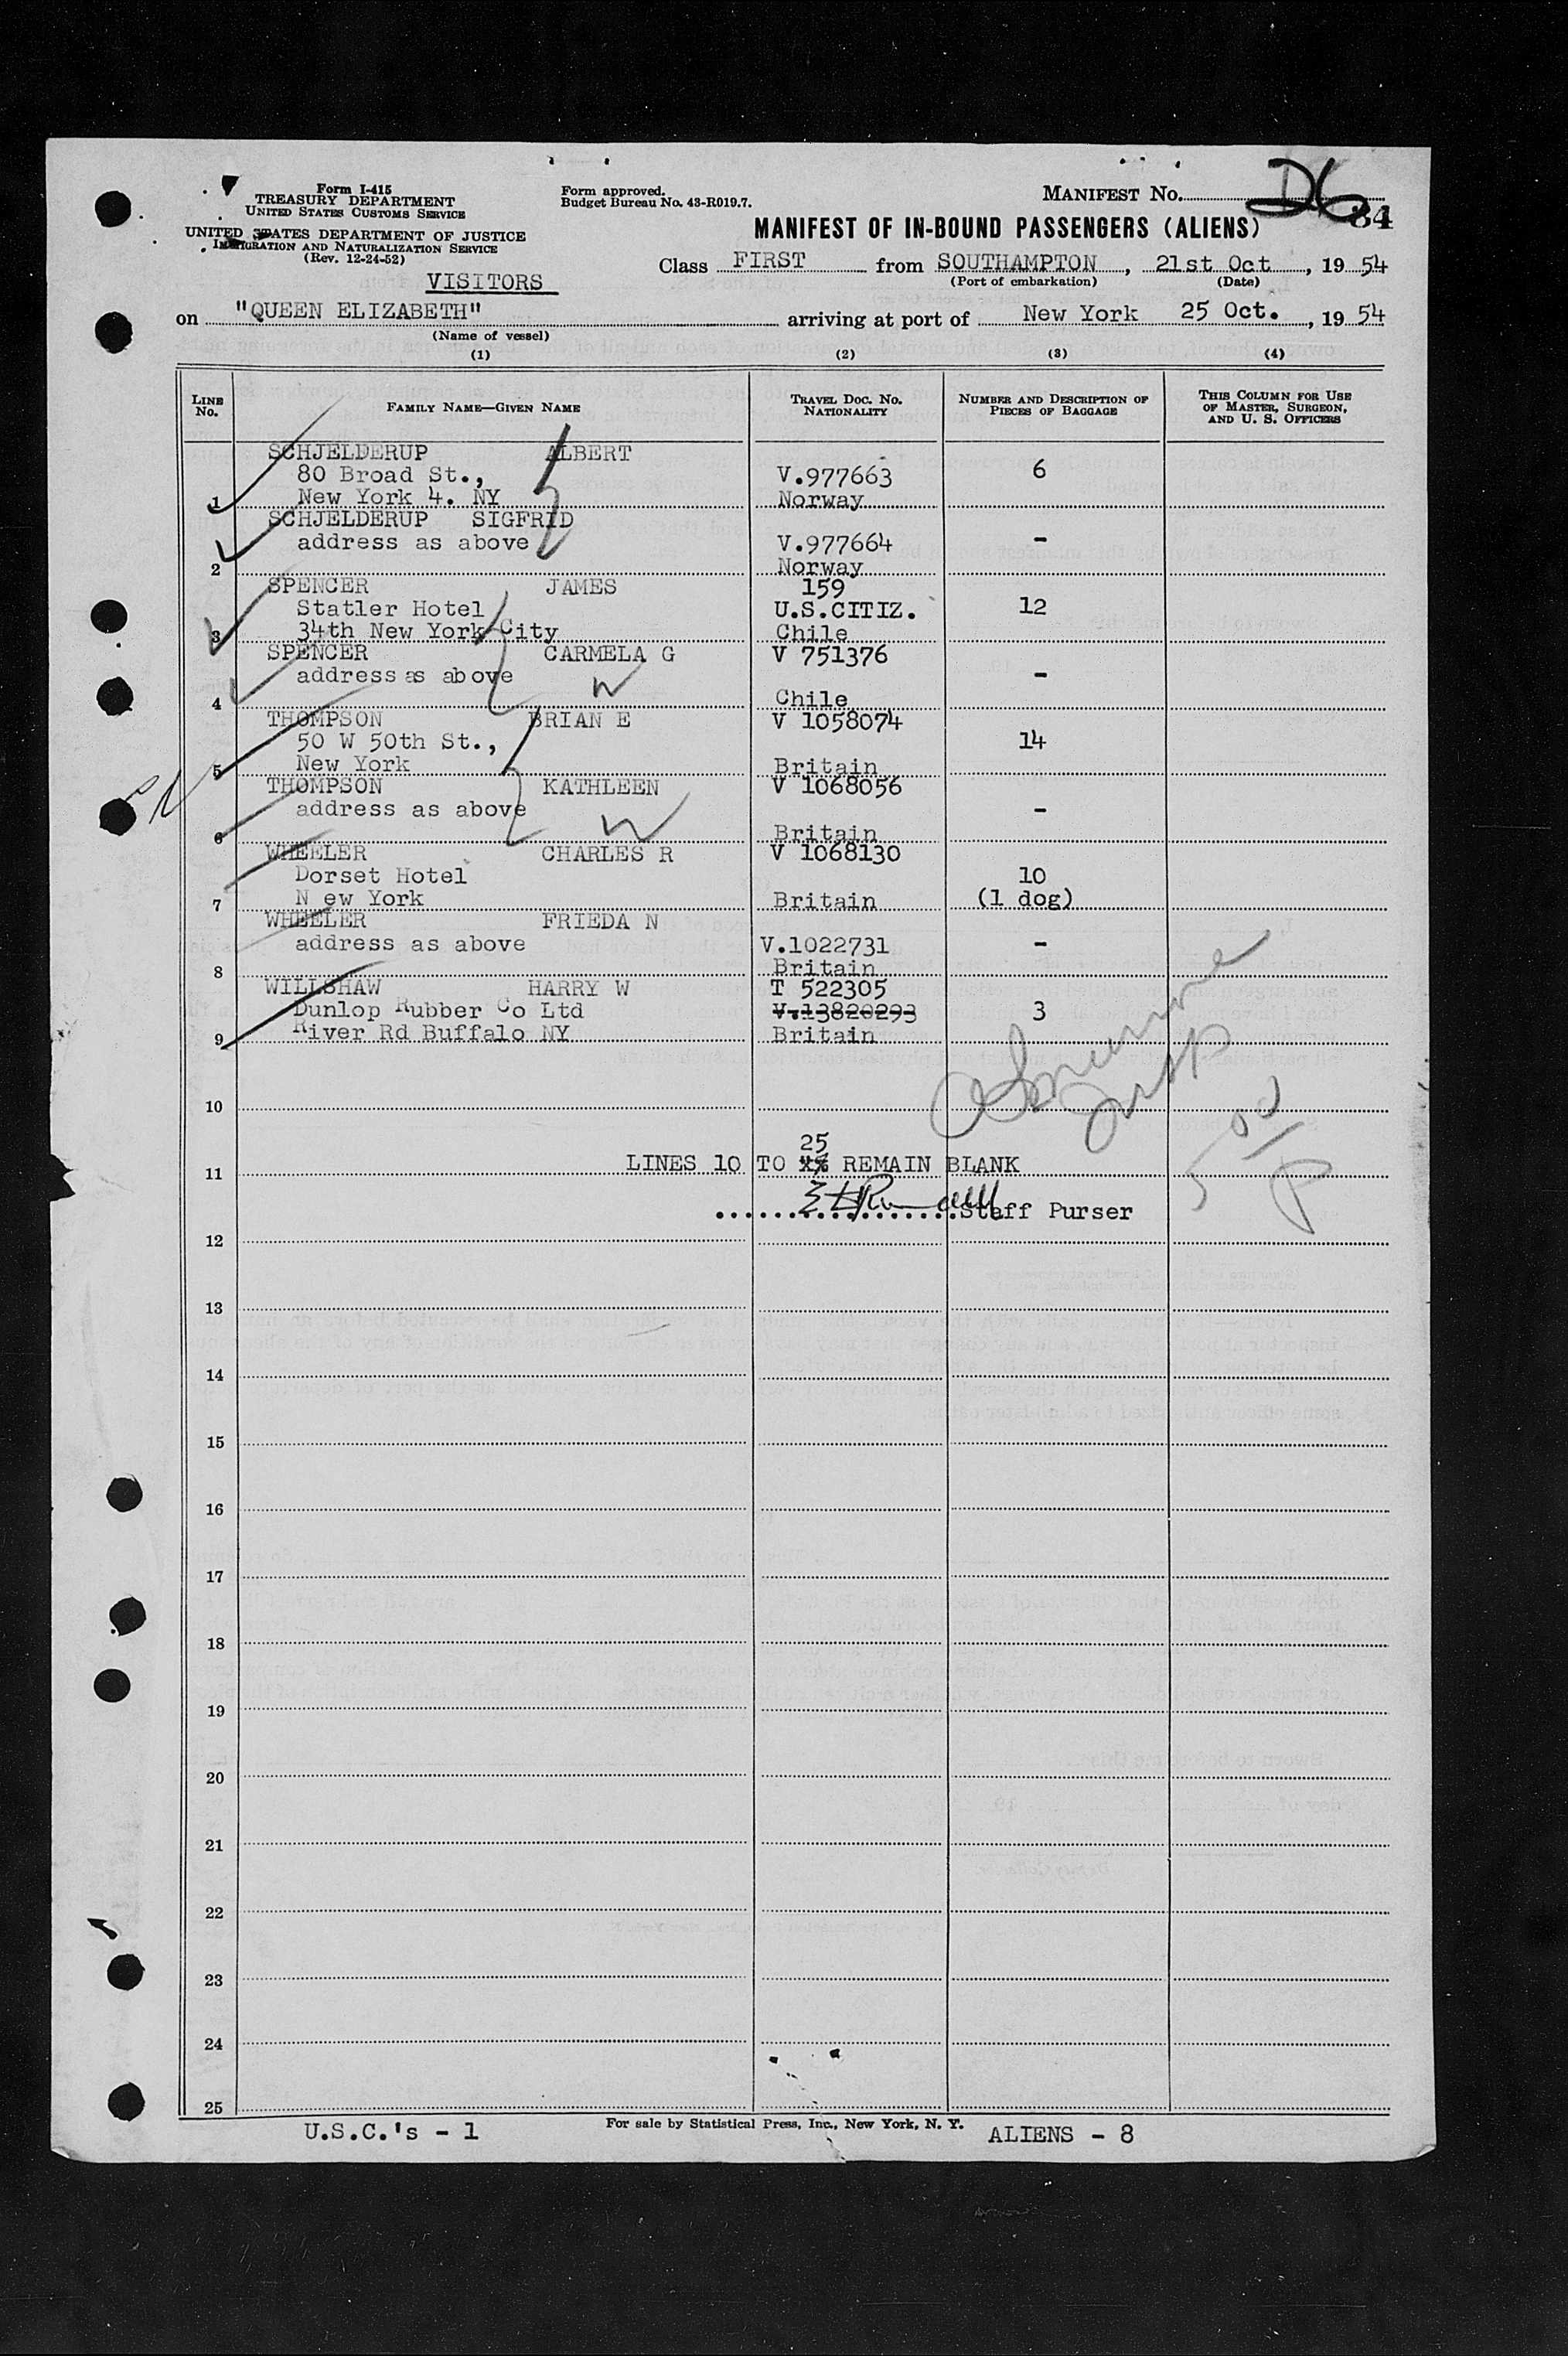 Form I-415
TREASURY DEPARTMENT
UNITED STATES CUSTOMS SERVICE
UNITED STATES DEPARTMENT OF JUSTICE
IMMIGRATION AND NATURALIZATION SERVICE
(Rev. 12-24-52)
Form approved.
Budget Bureau No. 43-R019.7.
MANIFEST No. D6
84
MANIFEST OF IN-BOUND PASSENGERS (ALIENS)
Class FIRST from SOUTHAMPTON, 21st Oct, 19 54
(Port of embarkation) (Date)
VISITORS
on "QUEEN ELIZABETH" arriving at port of New York 25 Oct., 19 54
(Name of vessel)
(1) (2) (3) (4)
LINE No. FAMILY NAME—GIVEN NAME TRAVEL DOC. NO. NATIONALITY NUMBER AND DESCRIPTION OF PIECES OF BAGGAGE THIS COLUMN FOR USE OF MASTER, SURGEON, AND U. S. OFFICERS
SCHJELDERUP ALBERT
80 Broad St., V.977663 6
1 New York 4. NY Norway
SCHJELDERUP SIGFRID
address as above V.977664 -
2 Norway
SPENCER JAMES 159
Statler Hotel U.S.CITIZ. 12
3 34th New York City Chile
SPENCER CARMELA G V 751376
address as above -
4 Chile
THOMPSON BRIAN E V 1058074
50 W 50th St., 14
5 New York Britain
THOMPSON KATHLEEN V 1068056
address as above -
6 Britain
WHEELER CHARLES R V 1068130
Dorset Hotel 10
7 N ew York Britain (1 dog)
WHEELER FRIEDA N
address as above V.1022731 -
8 Britain
WILLSHAW HARRY W T 522305
Dunlop Rubber Co Ltd V.13820293 3
9 River Rd Buffalo NY Britain
10
25
11 LINES 10 TO REMAIN BLANK
..................Staff Purser
12
13
14
15
16
17
18
19
20
21
22
23
24
25
U.S.C.'s - 1 For sale by Statistical Press, Inc., New York, N. Y. ALIENS - 8